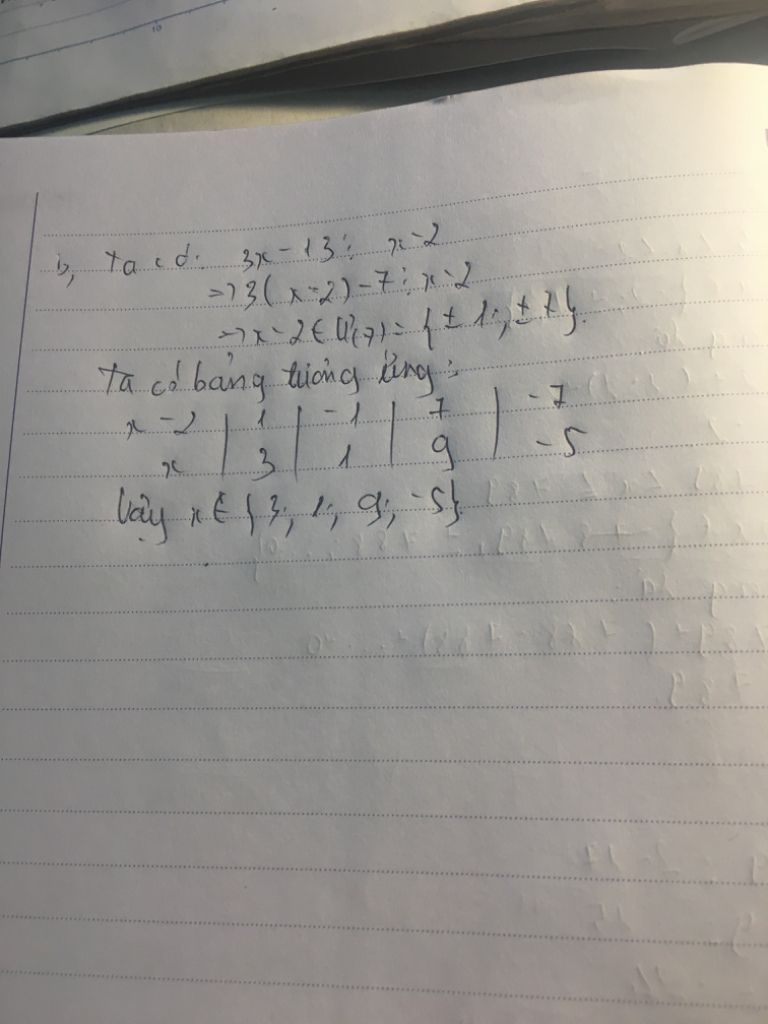 b, Ta có: 3x - 13 ⋮ x - 2
=> 3(x - 2) - 7 ⋮ x - 2
=> x - 2 ∈ Ư(7) = {± 1; ± 7}.
Ta có bảng tương ứng:
x - 2 | 1 | -1 | 7 | -7
x | 3 | 1 | 9 | -5
Vậy x ∈ {3; 1; 9; -5}